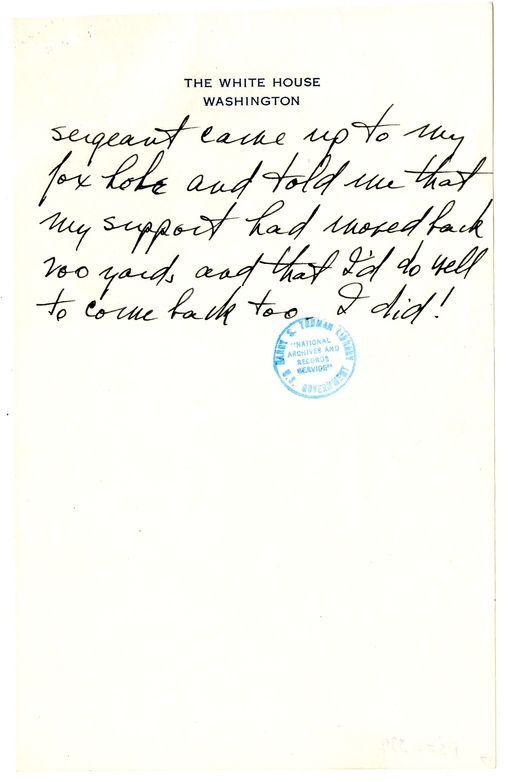 THE WHITE HOUSE
WASHINGTON
sergeant came up to my
fox hole and told me that
my support had moved back
200 yards and that I'd do well
to come back too. I did!
HARRY S. TRUMAN LIBRARY
"NATIONAL
ARCHIVES AND
RECORDS
SERVICE"
U.S. GOVERNMENT